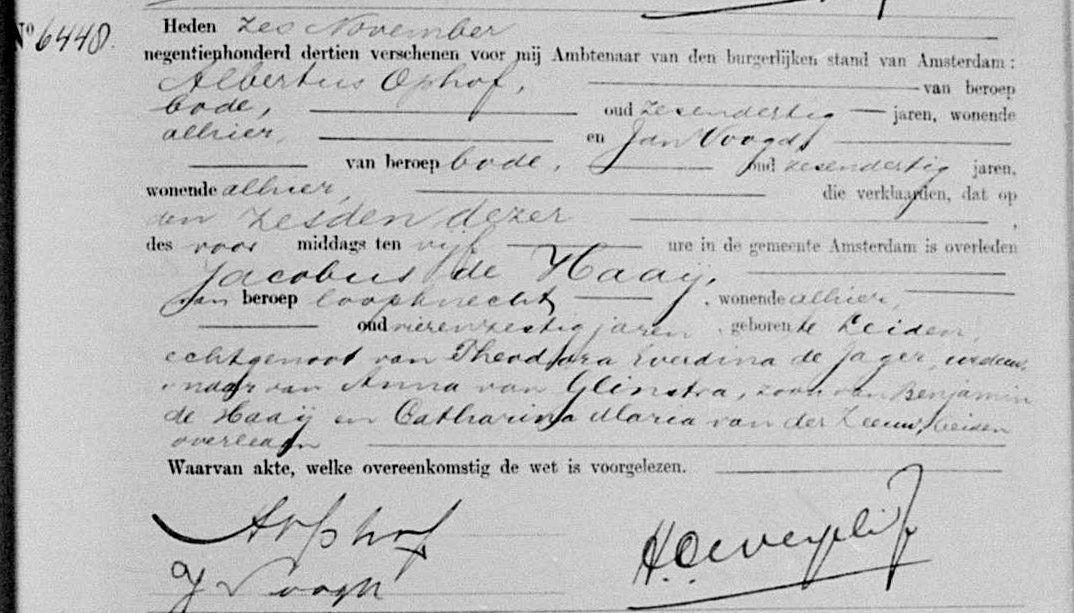 No 6448. Heden zes November
negentienhonderd dertien verschenen voor mij Ambtenaar van den burgerlijken stand van Amsterdam:
Albertus Ophof, van beroep
bode, oud zesendertig jaren, wonende
alhier, en Jan Voogd,
van beroep bode, oud zesendertig jaren,
wonende alhier, die verklaarden, dat op
den zesden dezer
des voor middags ten vijf ure in de gemeente Amsterdam is overleden
Jacobus de Haaij,
van beroep loopknecht, wonende alhier,
oud vierenzestig jaren, geboren te Leiden,
echtgenoot van Theodora Everdina de Jager, weduw-
naar van Anna van Glinstra, zoon van Benjamin
de Haaij en Catharina Maria van der Zeeuw, beiden
overleden
Waarvan akte, welke overeenkomstig de wet is voorgelezen.
AOphof
J Voogd